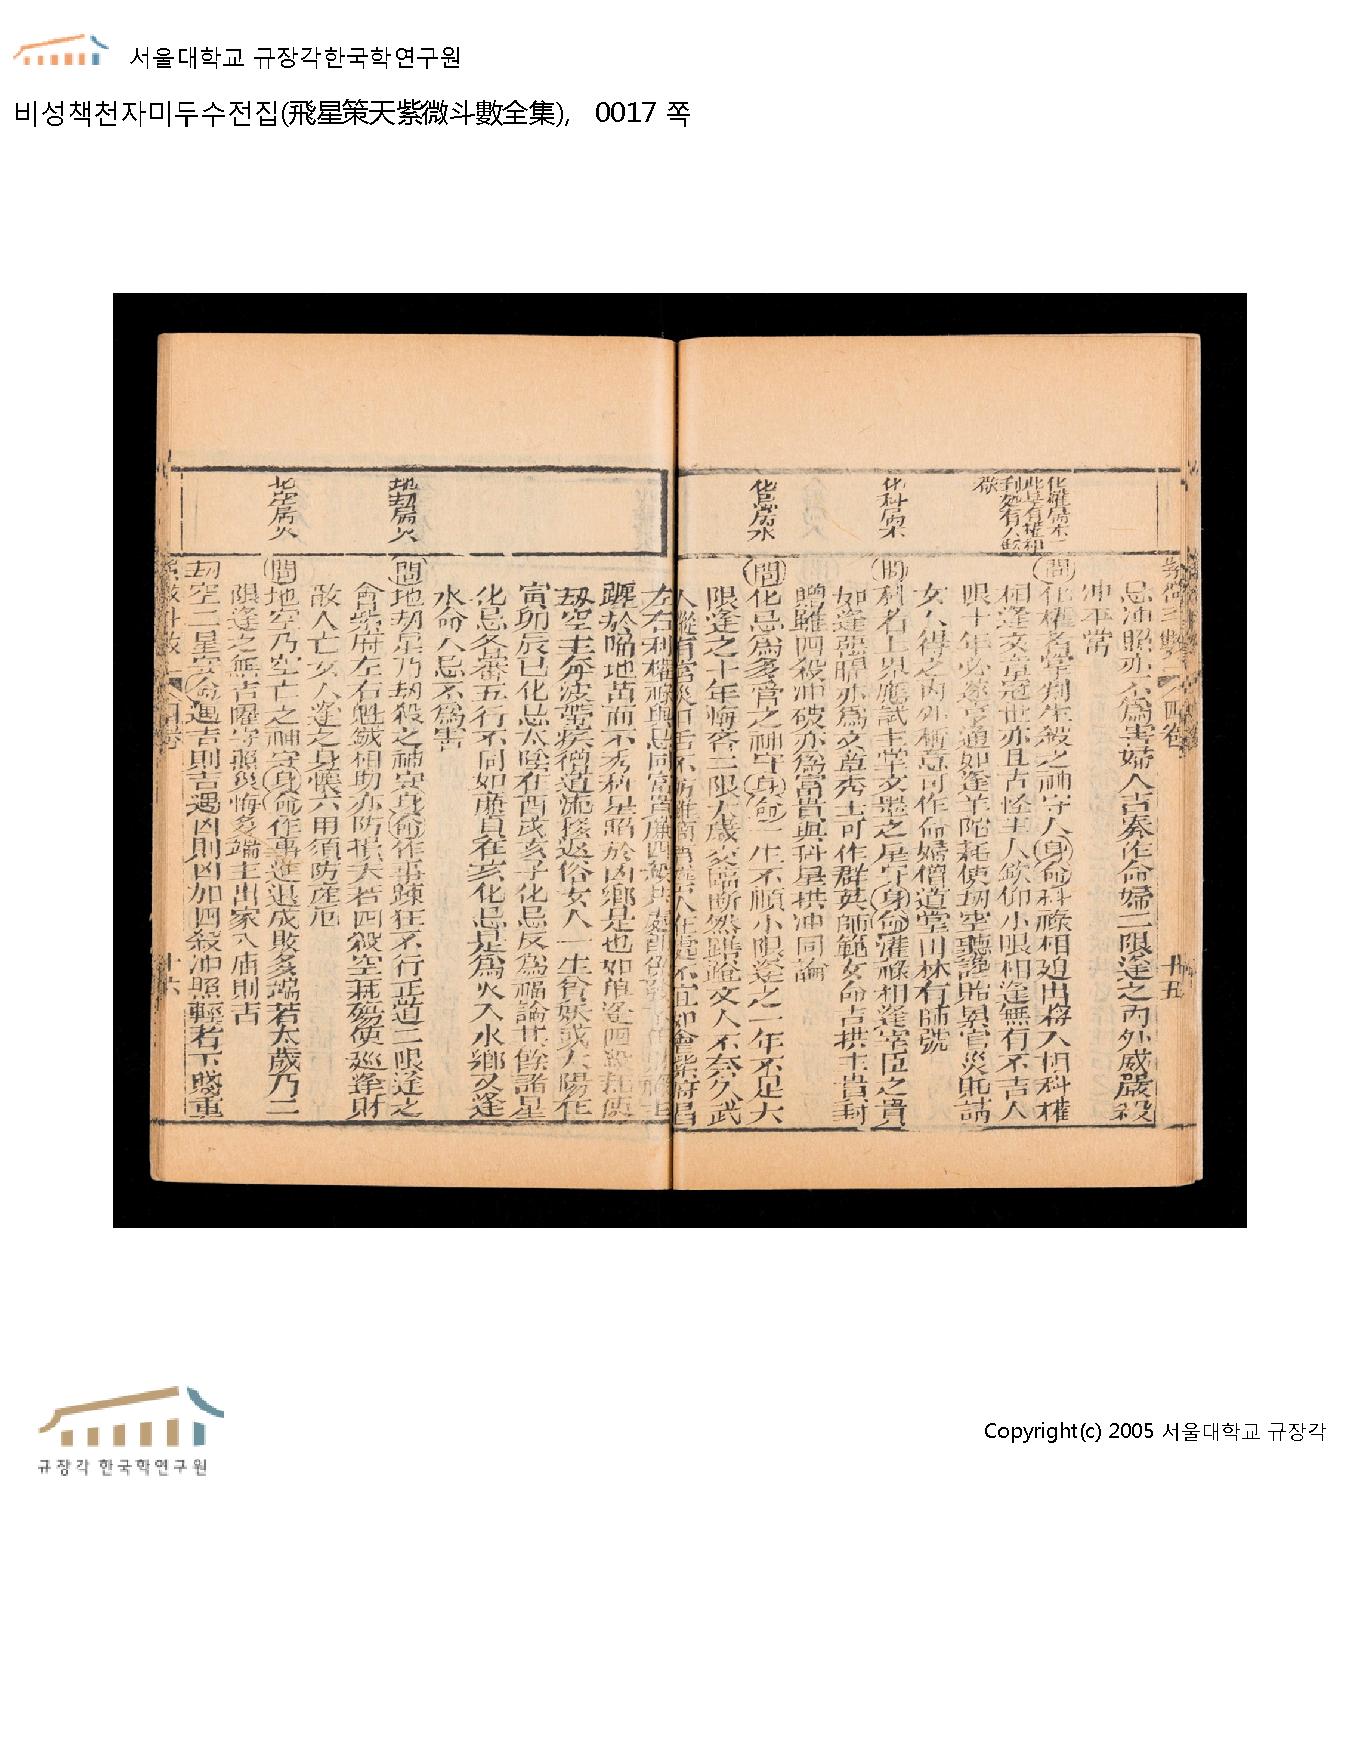 서울대학교 규장각한국학연구원
비성책천자미두수전집(飛星策天紫微斗數全集), 0017 쪽
忌沖照亦不為害婦人吉奏作命婦二限逢之內外威嚴殺
沖平常
化權屬木
問化權者掌判生殺之神守人身命科祿相迎出將入相科權
相逢文章冠世亦且古怪事人欽仰小限相逢無有不吉人
限十年必遂亨通如逢羊陀耗使劫空聽讒貽累官災貶謫
女人得之內外稱意可作命婦僧道掌山林有師號
化科屬木
問科名上界應試主掌文墨之星守身命權祿相逢宰臣之貴
如逢惡曜亦為文章秀士可作群英師範女命吉拱主貴封
贈雖四殺沖破亦為富貴與科星拱沖同論
化忌屬水
問化忌為多管之神守身命一生不順小限逢之一年不足大
限逢之十年悔吝二限太歲交臨斷然蹭蹬文人不奈久武
左右科權祿與忌同宮
躔於陷地苗而不秀科星陷於凶鄉是也如單逢四殺耗使
劫空主奔波帶疾僧道流移還俗女人一生貧夭或太陽在
寅卯辰巳化忌太陰在酉戌亥子化忌反為福論其餘諸星
化忌各審五行不同如廉貞在亥化忌是為火入水鄉又逢
水命人忌不為害
地劫屬火
問地劫星乃劫殺之神守身命作事疎狂不行正道二限逢之
會紫府左右魁鉞相助亦防損失若四殺空耗殤使巡逢財
散人亡女人逢之身懷六甲須防產厄
地空屬火
問地空乃空亡之神守身命作事進退成敗多端若太歲乃二
限逢之無吉曜守照災悔多端主出家入庙則吉
劫空二星守命遇吉則吉遇凶則凶加四殺沖照輕者下賤重
十六
규장각 한국학연구원
Copyright(c) 2005 서울대학교 규장각